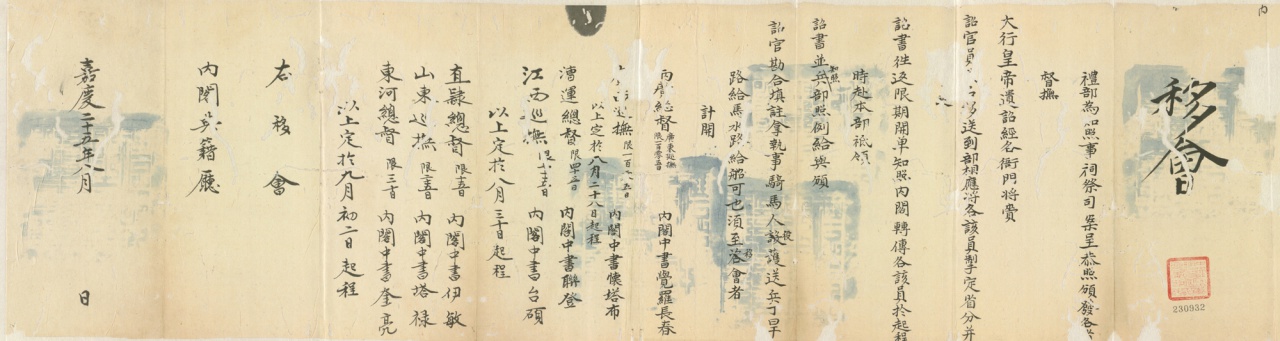 內
移會
230932
禮部為知照事祠祭司案呈恭照頒發各省
督撫
大行皇帝遺詔經各衙門將賫
詔官員移送到部相應將各該員掣定省分并
詔書往返限期開單知照內閣轉傳各該員於起程
時赴本部祗領
詔書並知照兵部照例給與頒
詔官勘合填註拿執事騎馬人役護送兵丁旱
路給馬水路給船可也須至移會者
計開
兩廣總督 廣東巡撫 內閣中書覺羅長春
撫 內閣中書懷塔布
以上定於八月二十八日起程
漕運總督 內閣中書聯登
江西巡撫 內閣中書台碩
以上定於八月三十日起程
直隸總督 內閣中書伊敏
山東巡撫 內閣中書塔祿
東河總督 內閣中書奎亮
以上定於九月初二日起程
右移會
內閣典籍廳
嘉慶二十五年八月 日